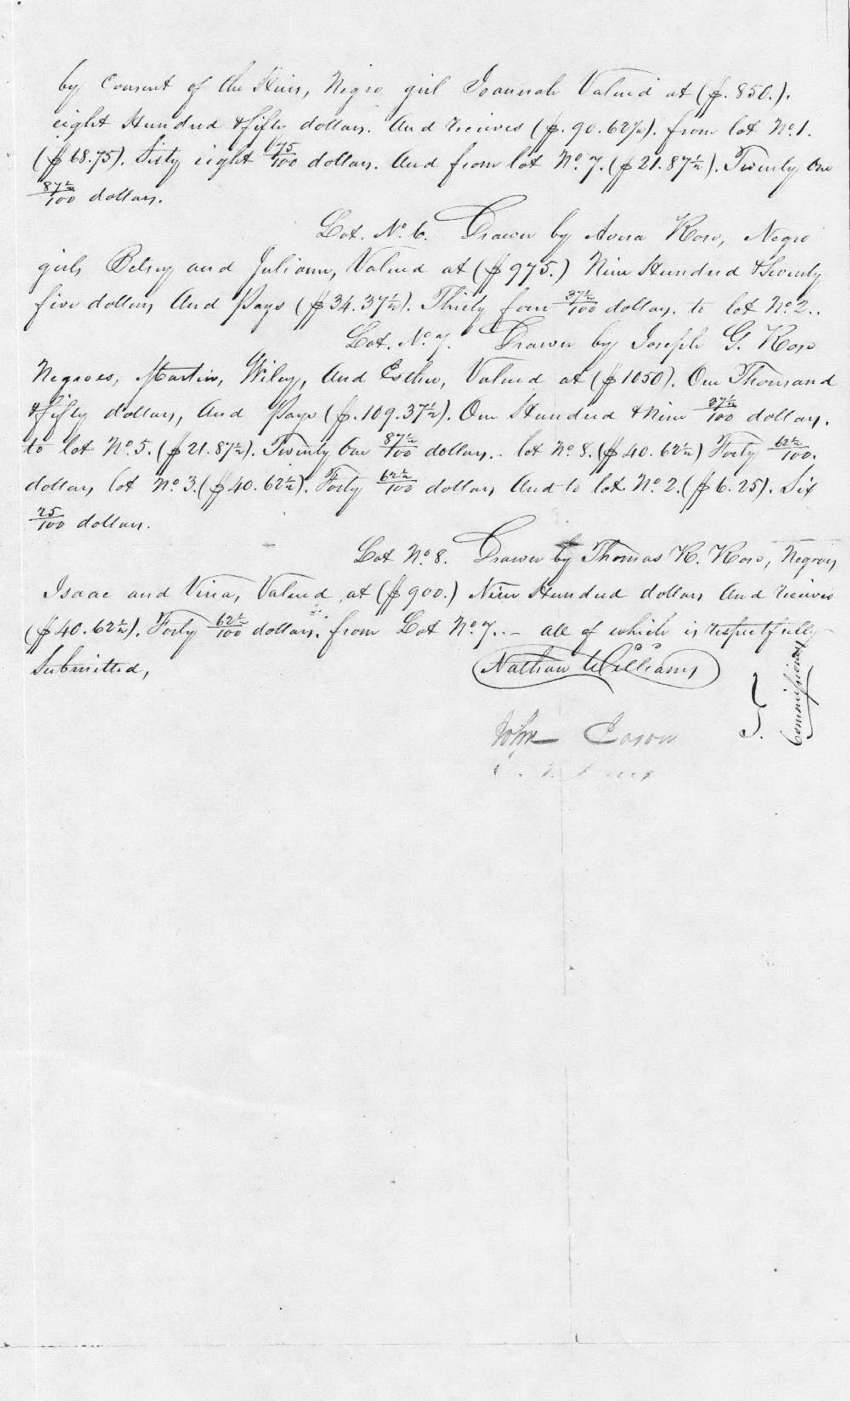 by consent of the Heirs, Negro girl Joannah Valued at ($.850.).
eight Hundred & fifty dollars. And receives ($.90.62½). from lot No.1.
($68.75). Sixty eight 75/100 dollars. And from lot No.7. ($21.87½). Twenty One
87½/100 dollars.
Lot. No. 6. Drawn by Avera Ross, Negro
girls Betsey and Juliann, Valued at ($975.) Nine Hundred & Seventy
five dollars And Pays ($34.37½). Thirty four 37½/100 dollars. to lot No.2..
Lot. No. 7. Drawn by Joseph G. Ross
Negroes, Martin, Wiley, And Esther, Valued at ($1050). One Thousand
& fifty dollars, And Pays ($.109.37½). One Hundred & Nine 37½/100 dollars.
to lot No.5. ($21.87½). Twenty One 87½/100 dollars.. lot No.8. ($40.62½) Forty 62½/100.
dollars, lot No.3. ($40.62½). Forty 62½/100 dollars, And to lot No.2. ($6.25). Six
25/100 dollars.
Lot No.8. Drawn by Thomas R. Ross, Negroes
Isaac and Vina, Valued at ($900.) Nine Hundred dollars And receives
($40.62½). Forty 62½/100 dollars. from Lot No.7.. - all of which is respectfully
Submitted,
Nathan Williams
John Eason
Commissioners